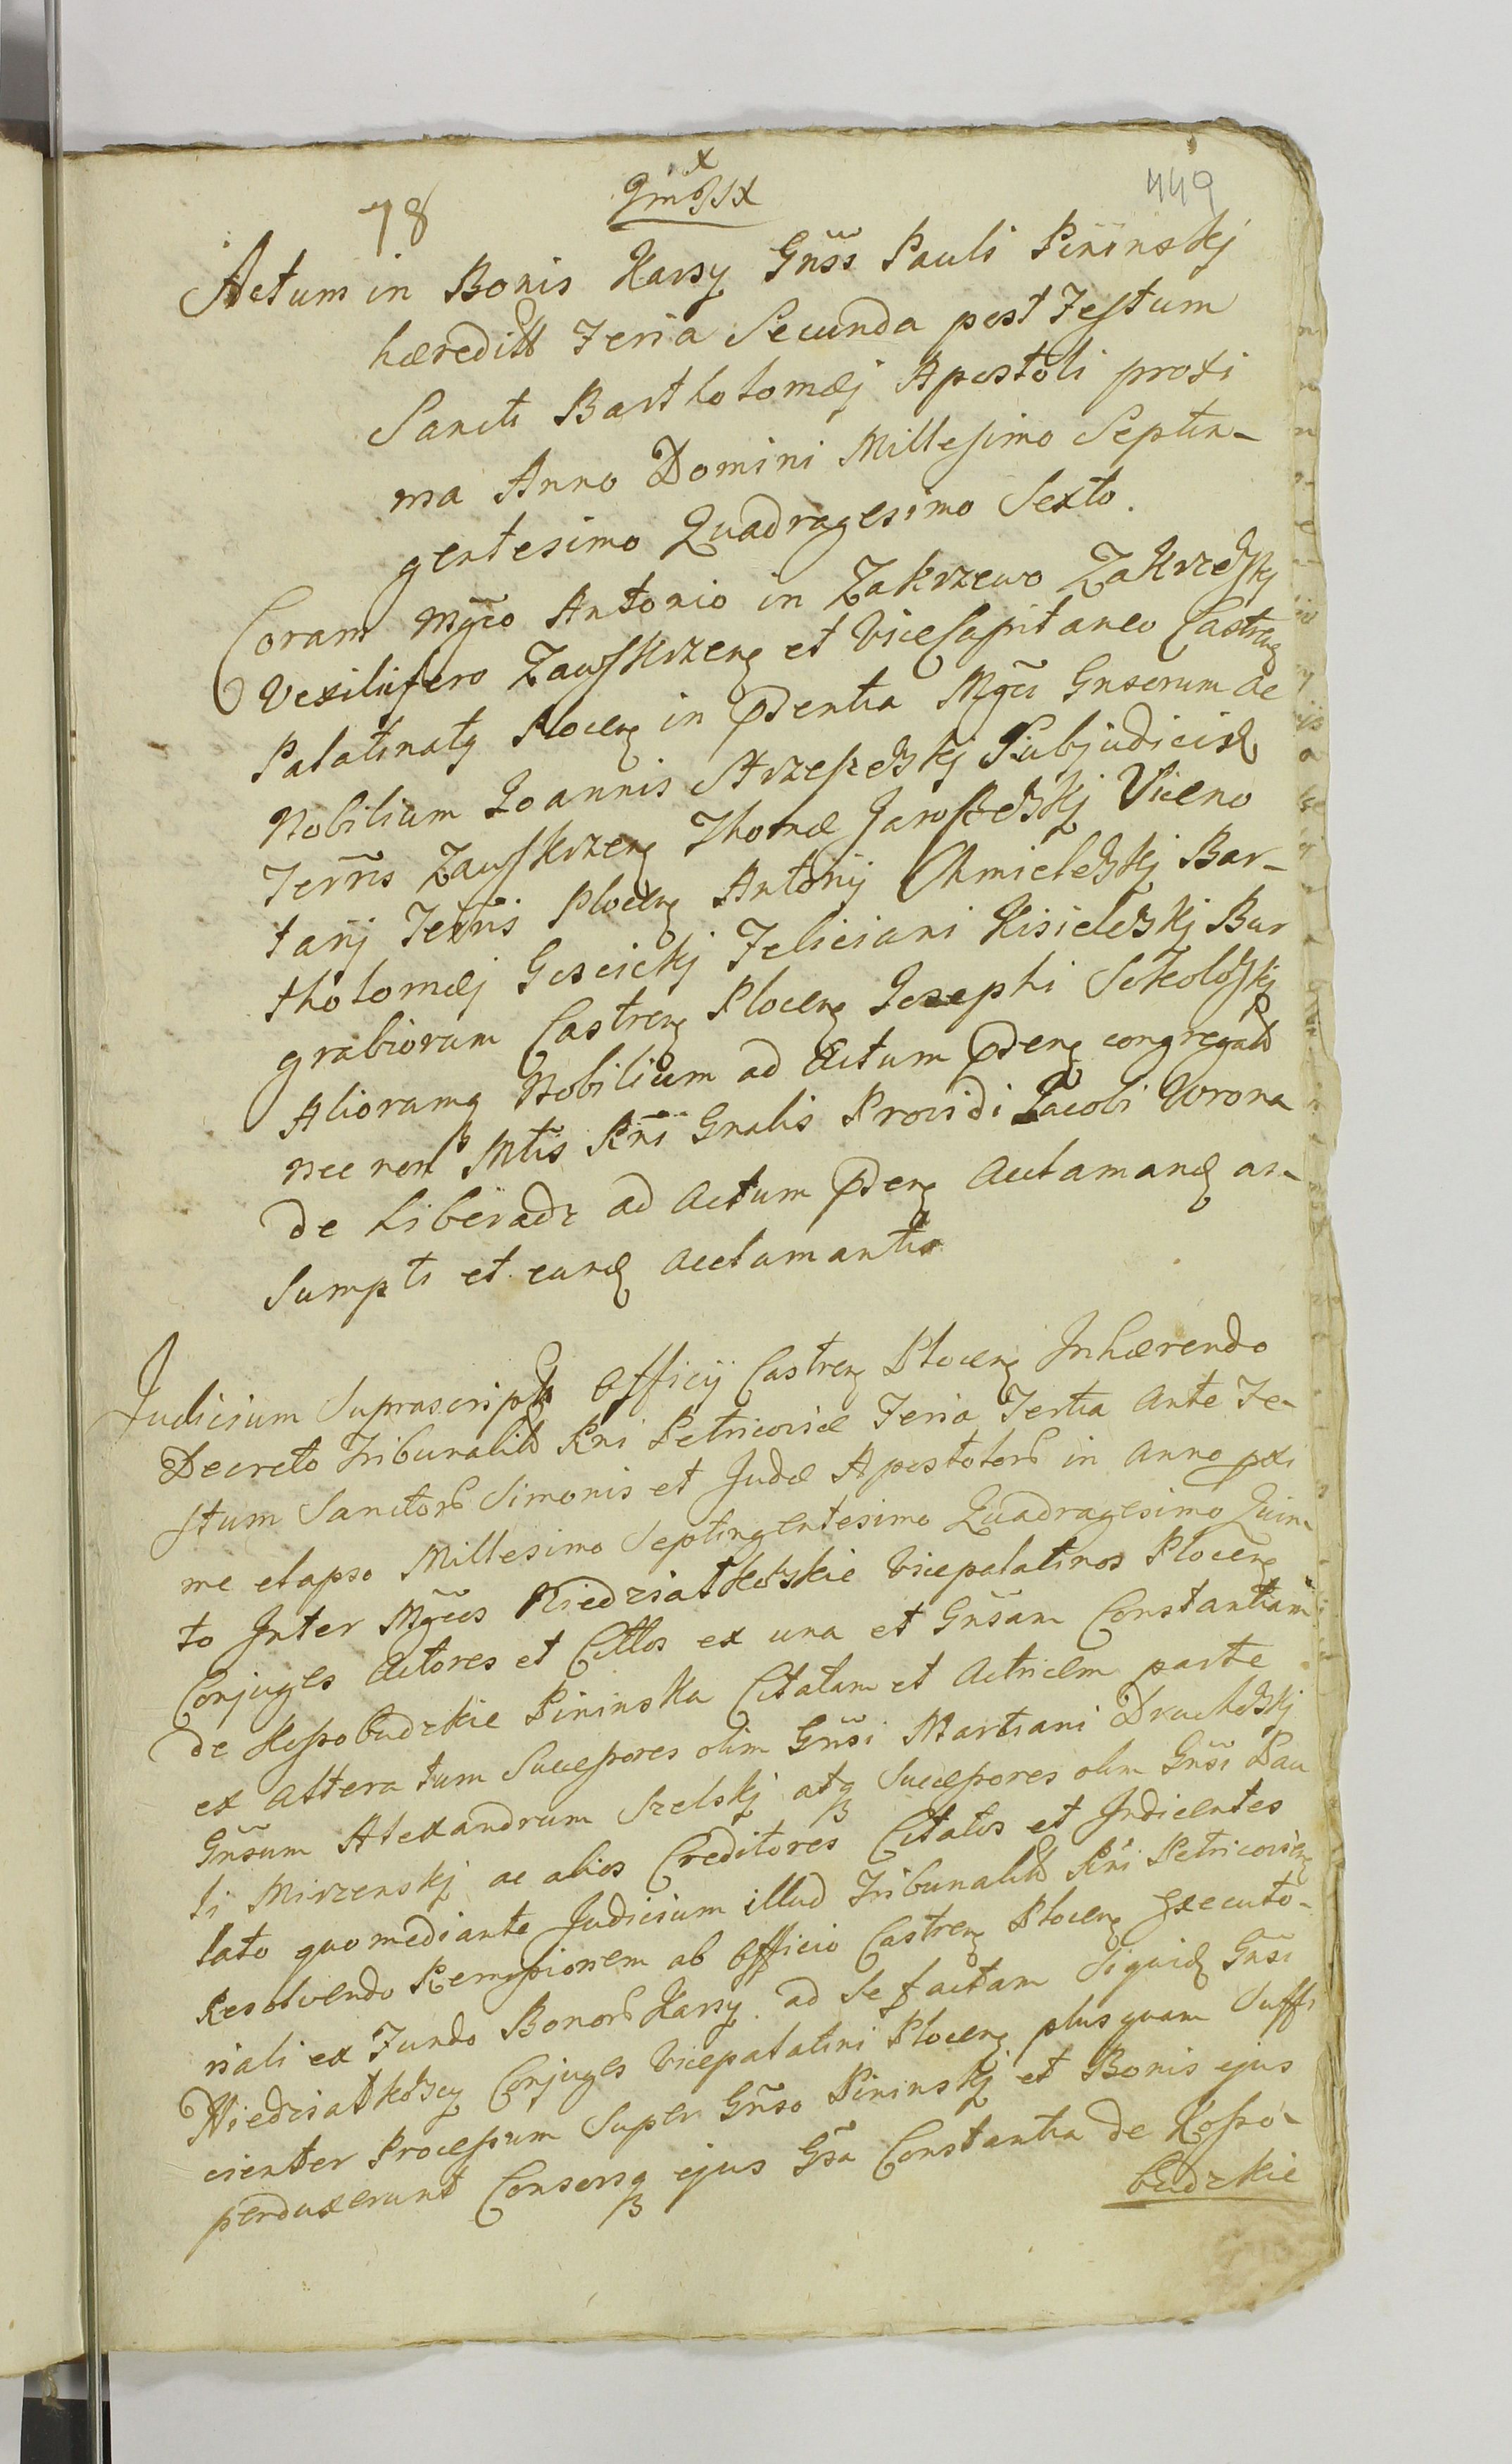 78
449
Actum in Bonis Karsy Gnss Pauli Pininskj
hæreditt Feria Secunda post Festum
Sancti Bartholomæj Apostoli proxi
ma Anno Domini Millesimo Septin-
gentesimo Quadragesimo Sexto.
Coram Mgco Antonio in Zakrzewo Zakrzewskj
Vexilifero Zawskrzen et ViceCapitaneo Castren
Palatinatq Plocen in pdentia Mgci Gnserum ac
Nobilium Joannis Strzeszewskj Subjudicis
Terris Zawskrzen Thomæ Jaroszewskj Viceno
tarij Terris Plocen Antonij Chmielewskj Bar-
tholomæj Goscickj Feliciani Kisielewskj Bur
grabiorum Castren Plocen Josephi Sokolowskj
Aliorumq Nobilium ad Actum pden congregatt
nec non Mtis Rni Gnalis Providi Jacobi Wrona
de Liberadz ad actum pden acclamand as-
sumpti et eund acclamantis
Judicium Suprascript Officij Castren Plocen Inhærendo
Decreto Tribunalitt Rni Petricoviæ Feria Tertia Ante Fe-
stum Sanctor Simonis et Judæ Apostolor in Anno pxi
me elapso Millesimo Septingentesimo Quadragesimo Quin-
to Inter Mgcos Niedziałkowskie Vicepalatinos Plocen
Conjuges Actores et Cittos ex una et Gnsam Constantiam
de Kossobudzkie Pininska Citatam et Actricem parte
ex altera tum Successores olim Gnsi Martiani Druchowskj
Gnsum Alexandrum Szelskj atq Successores olim Gnsi Pau
li Mirzenskj ac alios Creditores Citatos et Indicentes
lato quo mediante Judicium illud Tribunalitt Rni Petricovien
Resolvendo Remissionem ab Officio Castren Plocen Executo-
riali ex Fundo Bonor Karsy ad Se factam Siquid Gnsi
Niedziałkowscy Conjuges Vicepalatini Plocen plusquam Suffi
cienter Processum Super Gnso Pininskj et Bonis ejus
perduxerunt Consorsq ejus Gsa Constantia de Kosso-
budzkie